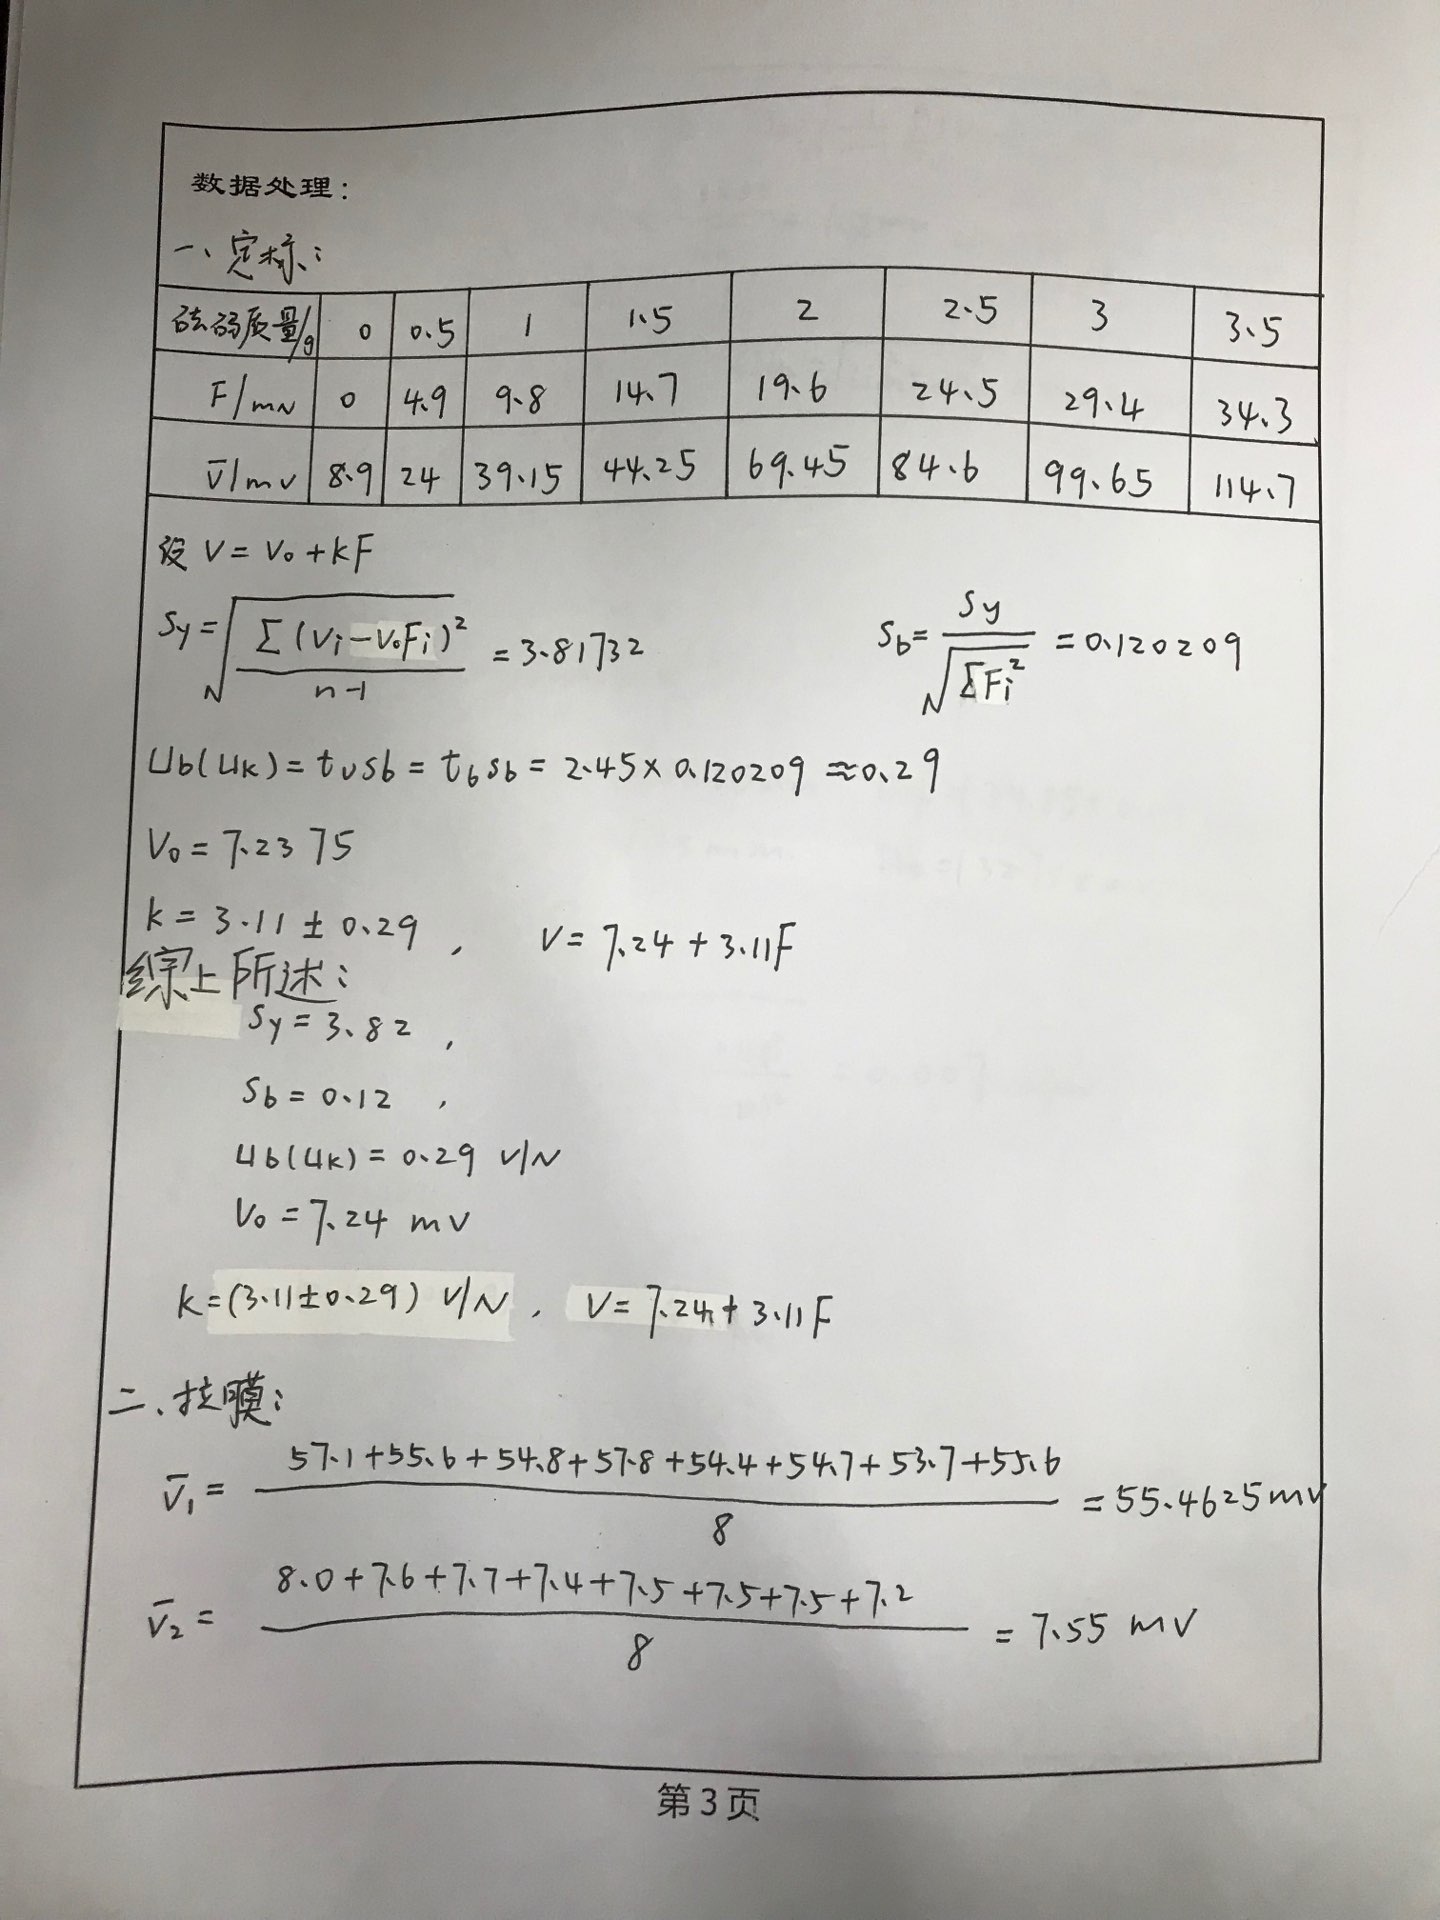 数据处理:
一、定标:
砝码质量/g 0 0.5 1 1.5 2 2.5 3 3.5
F/mN 0 4.9 9.8 14.7 19.6 24.5 29.4 34.3
V̄/mv 8.9 24 39.15 44.25 69.45 84.6 99.65 114.7
设 V = V₀ + kF
Sy = √(Σ(Vi-V₀Fi)²/(n-1)) = 3.81732 Sb = Sy/√(ΣFi²) = 0.120209
Ub(Uk) = tνSb = t6Sb = 2.45×0.120209 ≈ 0.29
V₀ = 7.2375
k = 3.11 ± 0.29 , V = 7.24 + 3.11F
综上所述:
Sy = 3.82 ,
Sb = 0.12 ,
Ub(Uk) = 0.29 V/N
V₀ = 7.24 mV
k = (3.11±0.29) V/N , V = 7.24 + 3.11F
二、拉膜:
V̄₁ = (57.1+55.6+54.8+57.8+54.4+54.7+53.7+55.6)/8 = 55.4625 mV
V̄₂ = (8.0+7.6+7.7+7.4+7.5+7.5+7.5+7.2)/8 = 7.55 mV
第3页